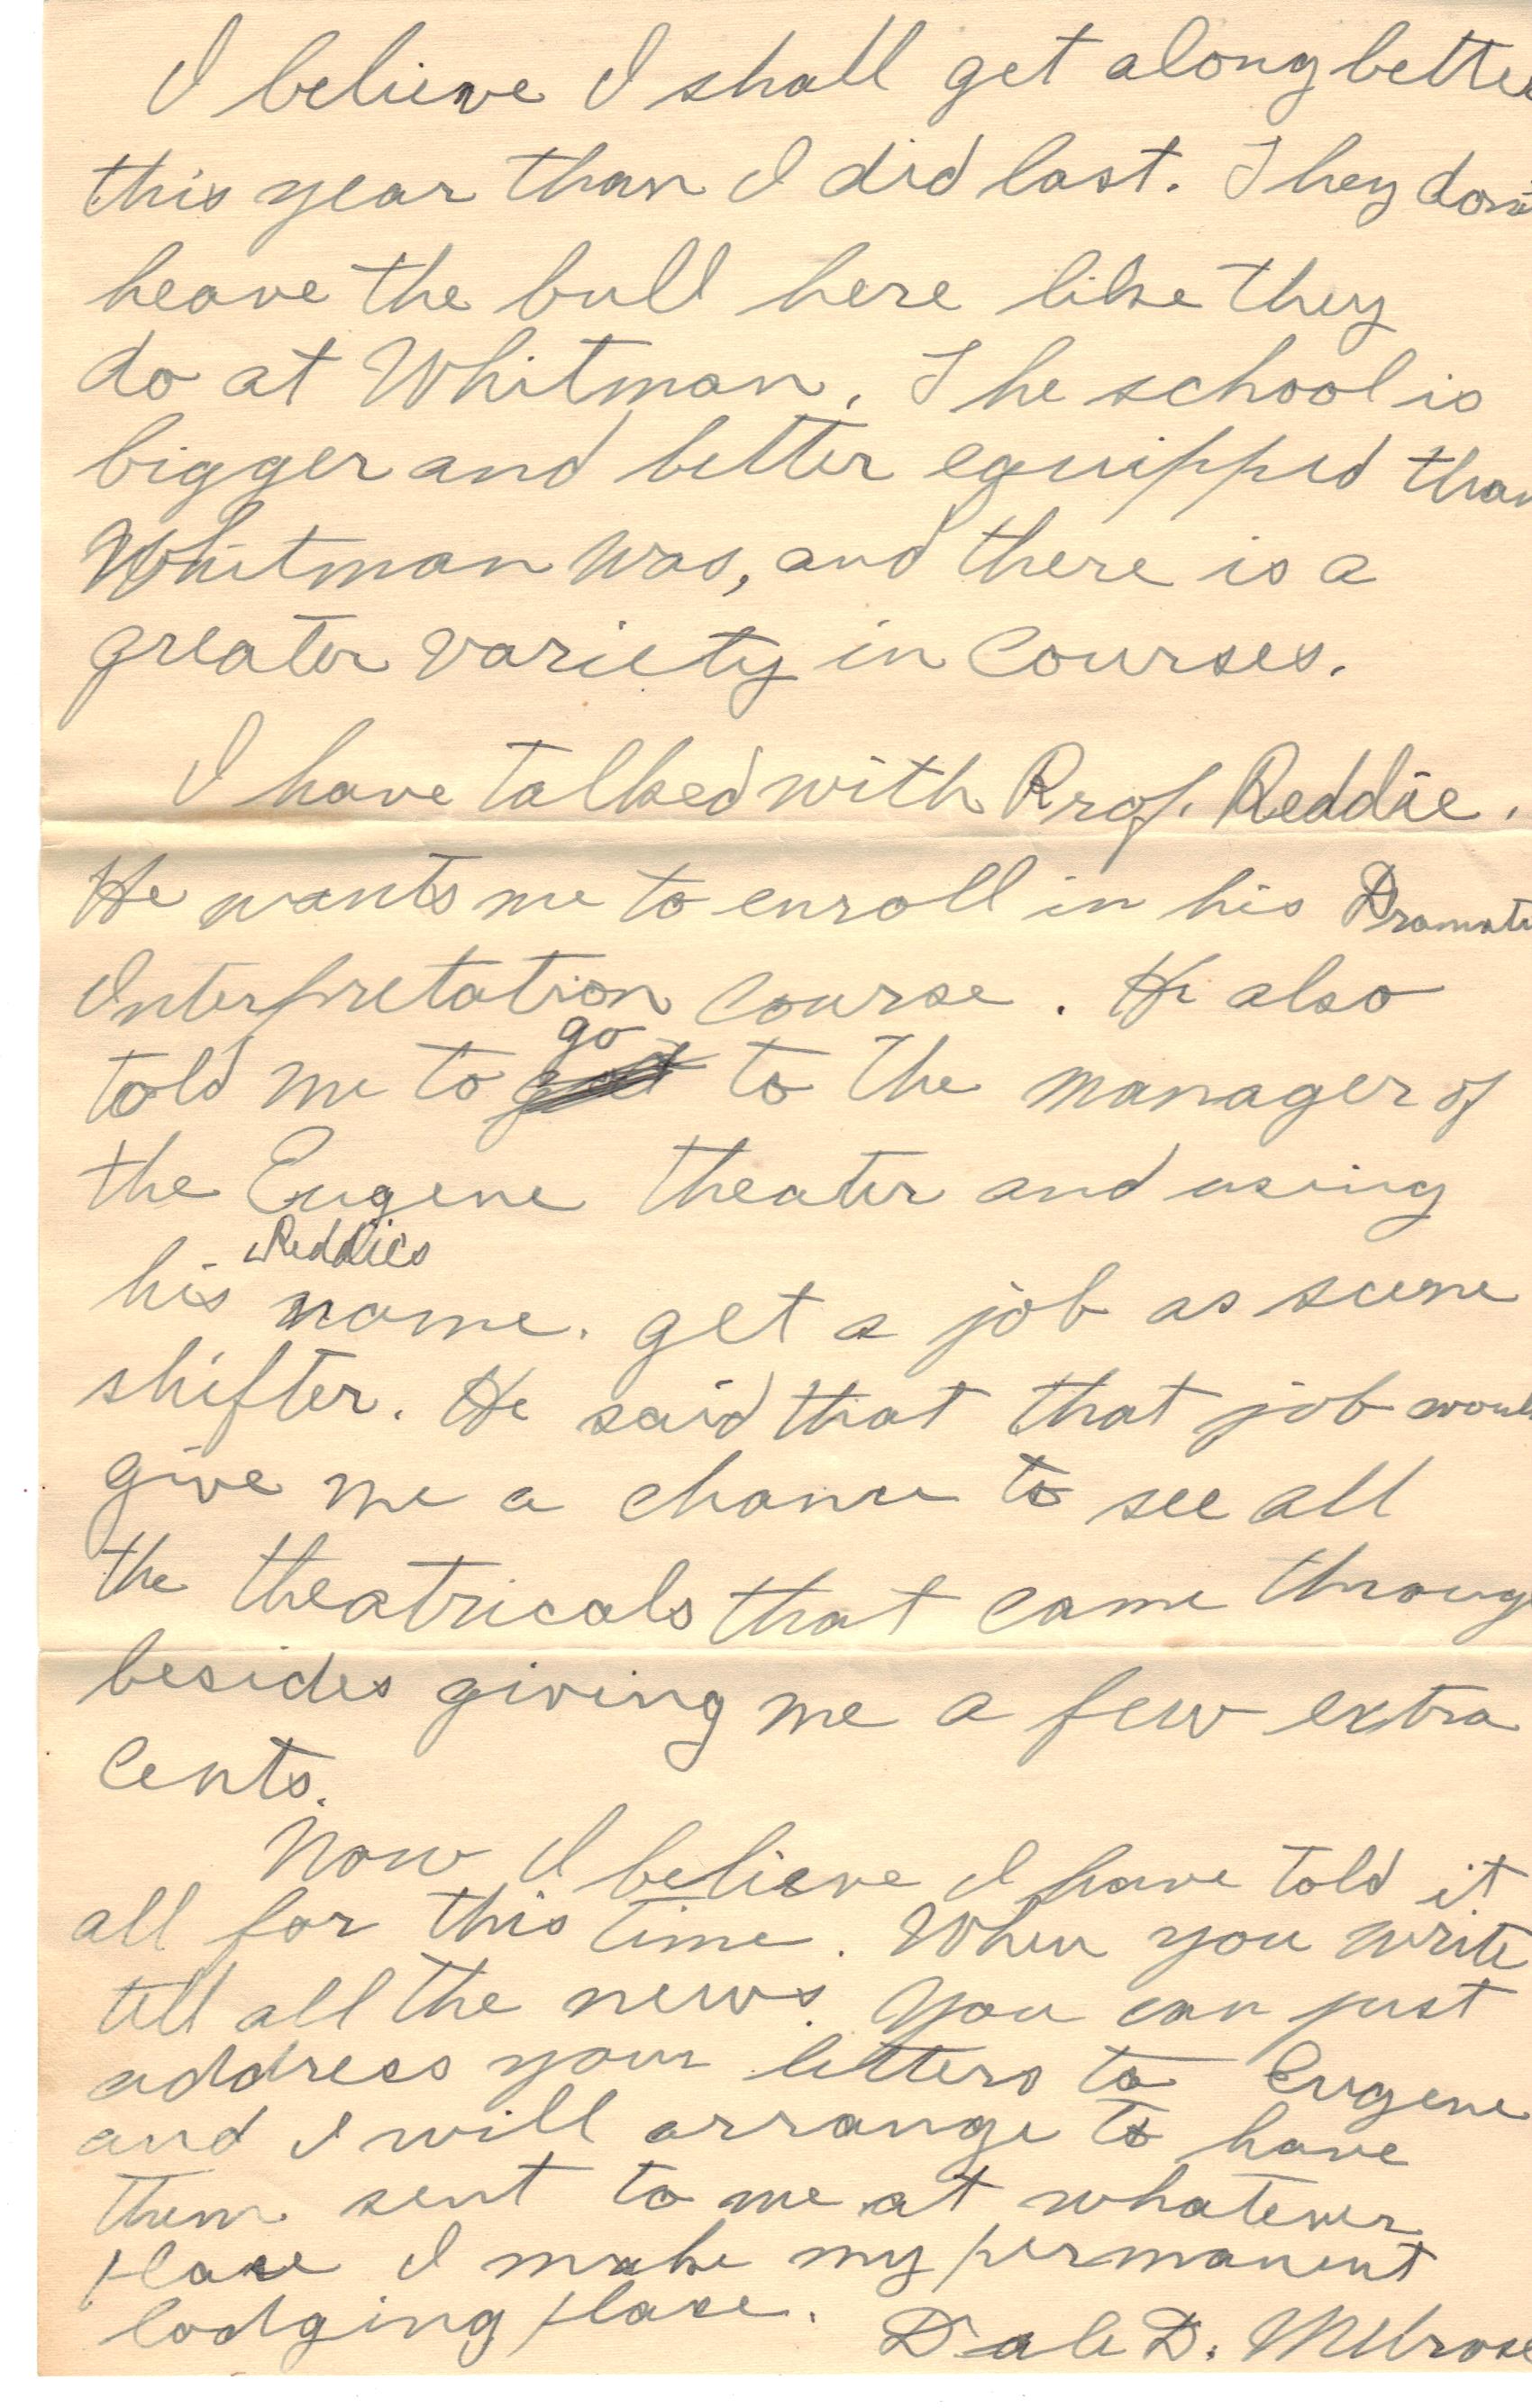 I believe I shall get along bette
this year than I did last. They don't
heave the bull here like they
do at Whitman. The school is
bigger and better equipped than
Whitman was, and there is a
greater variety in courses.
I have talked with Prof. Reddie.
He wants me to enroll in his Dramati
Interpretation course. He also
go
told me to to the manager of
the Eugene theater and using
Reddies
his name. get a job as scene
shifter. He said that that job woul
give me a chance to see all
the theatricals that came throug
besides giving me a few extra
cents.
Now I believe I have told it
all for this time. When you write
tell all the news. You can just
address your letters to Eugene
and I will arrange to have
them sent to me at whatever
place I make my permanent
lodging place. Dale D. Melrose